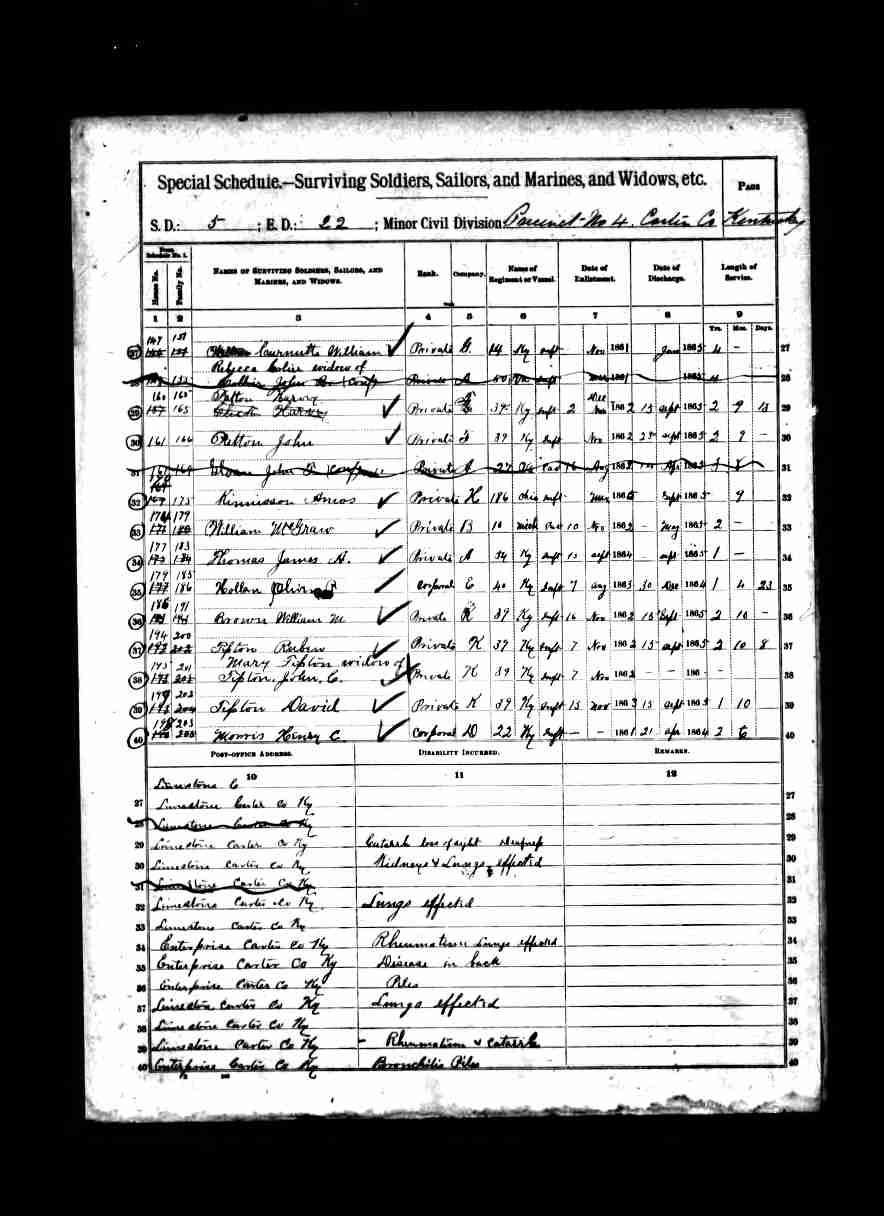 Special Schedule.—Surviving Soldiers, Sailors, and Marines, and Widows, etc.
PAGE
S. D.: 5 ; E. D.: 22 ; Minor Civil Division: Precinct No 4. Carter Co Kentucky
From Schedule No. 1.
House No. Family No. NAMES OF SURVIVING SOLDIERS, SAILORS, AND MARINES, AND WIDOWS. Rank. Company. Name of Regiment or Vessel. Date of Enlistment. Date of Discharge. Length of Service.
1 2 3 4 5 6 7 8 9
Yrs. Mos. Days.
27 William Private G. 14 Ky Inft Nov 1861 Jan 1865 4 - 27
Rebecca widow of
28 John Private A Inft 1861 1865 4 28
160 165 Harvy Dec
29 165 Harvy Private 39 Ky Inft 2 1862 15 Sept 1865 2 9 13 29
30 161 166 John Private 39 Ky Inft Nov 1862 Sept 1865 2 9 - 30
31 John Private Aug 31
32 175 Kinnisson Amos Private H 186 Ohio Inft 1865 Sept 1865 9 32
179
33 William McGraw Private B 10 Mich Cav 10 Nov 1862 - May 1865 2 - 33
177 183
34 Thomas James A. Private A 54 Ky Inft 15 Sept 1864 - Sept 1865 1 - 34
179 185
35 186 Hollan Corporal E 40 Ky Inft 7 Aug 1863 30 Dec 1864 1 4 23 35
191
36 Brown William M Private K 39 Ky Inft 16 Nov 1862 15 Sept 1865 2 10 - 36
194 200
37 202 Tipton Ruben Private K 39 Ky Inft 7 Nov 1862 15 Sept 1865 2 10 8 37
195 201 Mary Tipton widow of
38 Tipton, John, C. Private K 39 Ky Inft 7 Nov 1862 - - 186 - 38
202
39 204 Tipton David Private K 39 Ky Inft 15 Nov 1863 15 Sept 1865 1 10 39
203
40 Morris Henry C. Corporal D 22 Ky Inft - - 1861 21 Apr 1864 2 6 40
POST-OFFICE ADDRESS. DISABILITY INCURRED. REMARKS.
10 11 12
Limestone C
27 Limestone Carter Co Ky 27
28 Limestone Carter Co Ky 28
29 Limestone Carter Co Ky Catarrh loss of sight Deafness 29
30 Limestone Carter Co Ky Kidneys & Lungs effected 30
31 Limestone Carter Co Ky 31
32 Limestone Carter Co Ky. Lungs effected 32
33 Limestone Carter Co Ky 33
34 Enterprise Carter Co Ky Rheumatism Lungs effected 34
35 Enterprise Carter Co Ky Disease in back 35
36 Enterprise Carter Co Ky Piles 36
37 Limestone Carter Co Ky Lungs effected 37
38 Limestone Carter Co Ky 38
39 Limestone Carter Co Ky - Rheumatism & Catarrh 39
40 Enterprise Carter Co Ky Bronchitis Piles 40